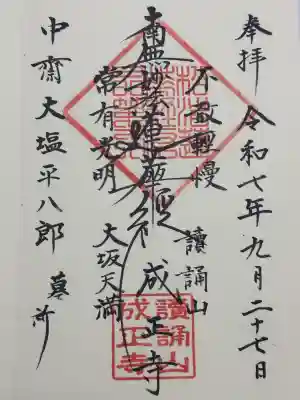 奉拝 令和七年九月二十七日
不敢軽慢 讀誦山
南無妙法蓮華経 成正寺
常有光明 大坂天満
中齋大塩平八郎 墓所
讀誦山
成正寺